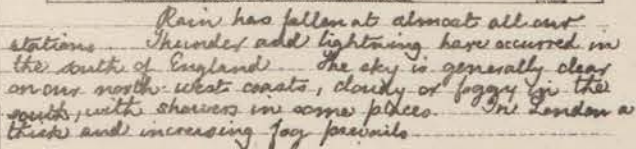 Rain has fallen at almost all our
stations. Thunder and lightning have occurred in
the south of England. The sky is generally clear
on our north-west coasts, cloudy or foggy in the
south, with showers in some places. In London a
thick and increasing fog prevails